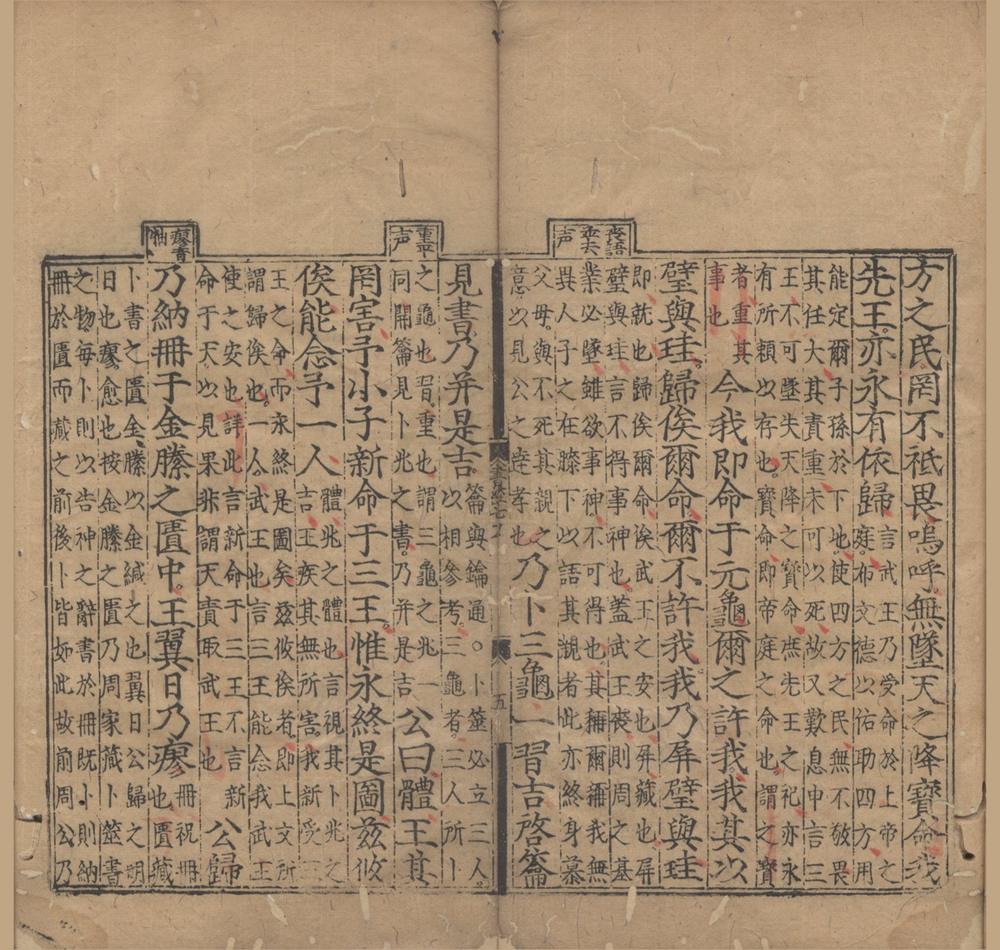 喪語
並去
声
方之民罔不祗畏嗚呼無墜天之降寶命我
先王亦永有依歸
言武王乃受命於上帝之
庭布文德以佑助四方用
能定爾子孫於下地使四方之民無不敬畏
其任大其責重未可以死故又歎息申言三
王不可墜失天降之寶命庶先王之祀亦永
有所賴以存也寶命即帝庭之命也謂之寶
者重其
事也
今我即命于元龜爾之許我我其以
璧與珪歸俟爾命爾不許我我乃屏璧與珪
即就也歸俟爾命俟武王之安也屏藏也屏
璧與珪言不得事神也蓋武王喪則周之基
業必墜雖欲事神不可得也其稱爾稱我無
異人子之在膝下以語其親者此亦終身慕
父母與不死其親之
意以見公之達孝也
乃卜三龜一習吉啓籥
五
重平
声
瘳音
抽
見書乃并是吉
籥與鑰通○卜筮必立三人
以相參考三龜者三人所卜
之龜也習重也謂三龜之兆一
同開籥見卜兆之書乃并是吉
公曰體王其
罔害予小子新命于三王惟永終是圖茲攸
俟能念予一人
體兆之體也言視其卜兆之
吉王疾其無所害我新受三
王之命而永終是圖矣茲攸俟者即上文所
謂歸俟也一人武王也言三王能念我武王
使之安也詳此言新命于三王不言新
命于天以見果非謂天責取武王也
公歸
乃納冊于金縢之匱中王翼日乃瘳
冊祝冊
也匱藏
卜書之匱金縢以金緘之也翼日公歸之明
日也瘳愈也按金縢之匱乃周家藏卜筮書
之物每卜則以告神之辭書於冊既卜則納
冊於匱而藏之前後卜皆如此故前周公乃